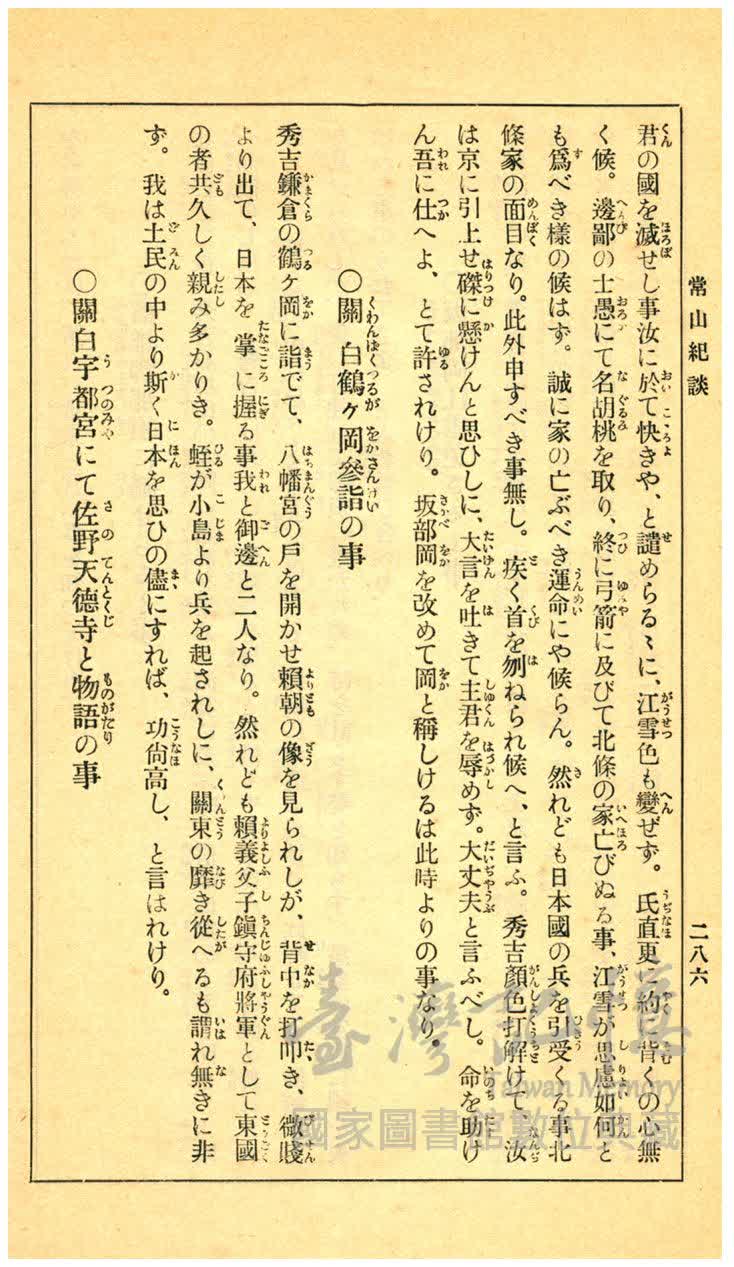 常山紀談
二八六
君の國を滅せし事汝に於て快きや、と譴めらるゝに、江雪色も變ぜず。氏直更に約に背くの心無
く候。邊鄙の士愚にて名胡桃を取り、終に弓箭に及びて北條の家亡びぬる事、江雪が思慮如何と
も爲べき樣の候はず。誠に家の亡ぶべき運命にや候らん。然れども日本國の兵を引受くる事北
條家の面目なり。此外申すべき事無し。疾く首を刎ねられ候へ、と言ふ。秀吉顏色打解けて、汝
は京に引上せ磔に懸けんと思ひしに、大言を吐きて主君を辱めず。大丈夫と言ふべし。命を助け
ん吾に仕へよ、とて許されけり。坂部岡を改めて岡と稱しけるは此時よりの事なり。
〇關白鶴ヶ岡參詣の事
秀吉鎌倉の鶴ヶ岡に詣でて、八幡宮の戸を開かせ賴朝の像を見られしが、背中を打叩き、微賤
より出て、日本を掌に握る事我と御邊と二人なり。然れども賴義父子鎭守府將軍として東國
の者共久しく親み多かりき。蛭が小島より兵を起されしに、關東の靡き從へるも謂れ無きに非
ず。我は土民の中より斯く日本を思ひの儘にすれば、功尙高し、と言はれけり。
〇關白宇都宮にて佐野天德寺と物語の事
臺灣記憶
Taiwan Memory
國家圖書館數位典藏